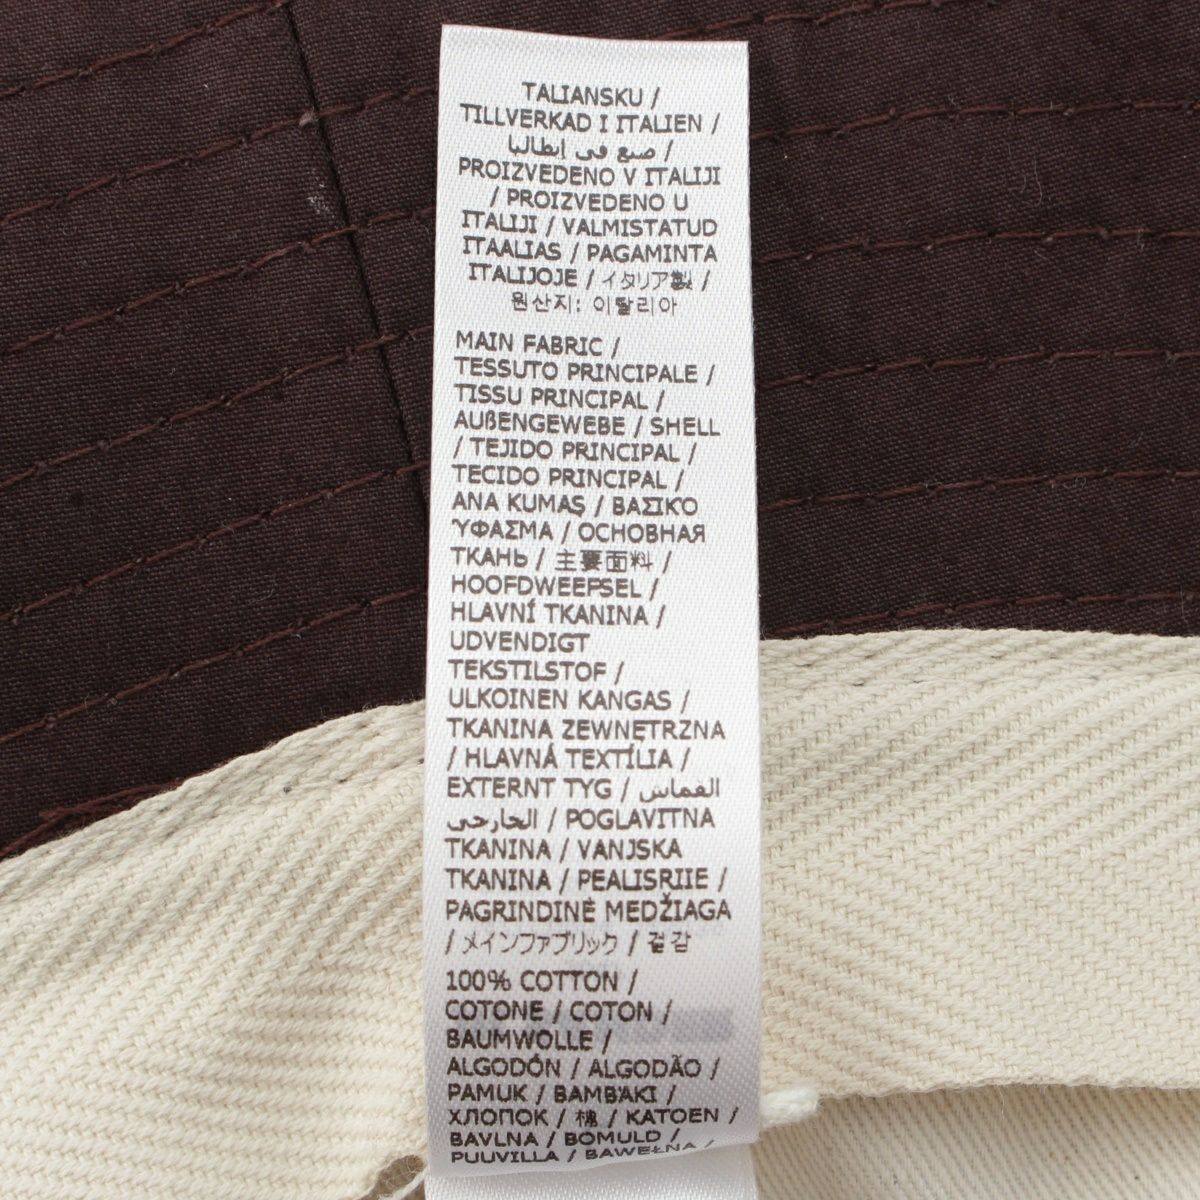 TALIANSKU /
TILLVERKAD I ITALIEN /
صنع في إيطاليا /
PROIZVEDENO V ITALIJI
/ PROIZVEDENO U
ITALIJI / VALMISTATUD
ITAALIAS / PAGAMINTA
ITALIJOJE / イタリア製 /
원산지: 이탈리아
MAIN FABRIC /
TESSUTO PRINCIPALE /
TISSU PRINCIPAL /
AUßENGEWEBE / SHELL
/ TEJIDO PRINCIPAL /
TECIDO PRINCIPAL /
ANA KUMAŞ / ΒΑΣΙΚΟ
ΎΦΑΣΜΑ / ОСНОВНАЯ
ТКАНЬ / 主要面料 /
HOOFDWEEFSEL /
HLAVNÍ TKANINA /
UDVENDIGT
TEKSTILSTOF /
ULKOINEN KANGAS /
TKANINA ZEWNĘTRZNA
/ HLAVNÁ TEXTÍLIA /
EXTERNT TYG / القماش
الخارجي / POGLAVITNA
TKANINA / VANJSKA
TKANINA / PEALISRIIE /
PAGRINDINĖ MEDŽIAGA
/ メインファブリック / 겉감
100% COTTON /
COTONE / COTON /
BAUMWOLLE /
ALGODÓN / ALGODÃO /
PAMUK / ΒΑΜΒΆΚΙ /
ХЛОПОК / 棉 / KATOEN /
BAVLNA / BOMULD /
PUUVILLA / BAWEŁNA /